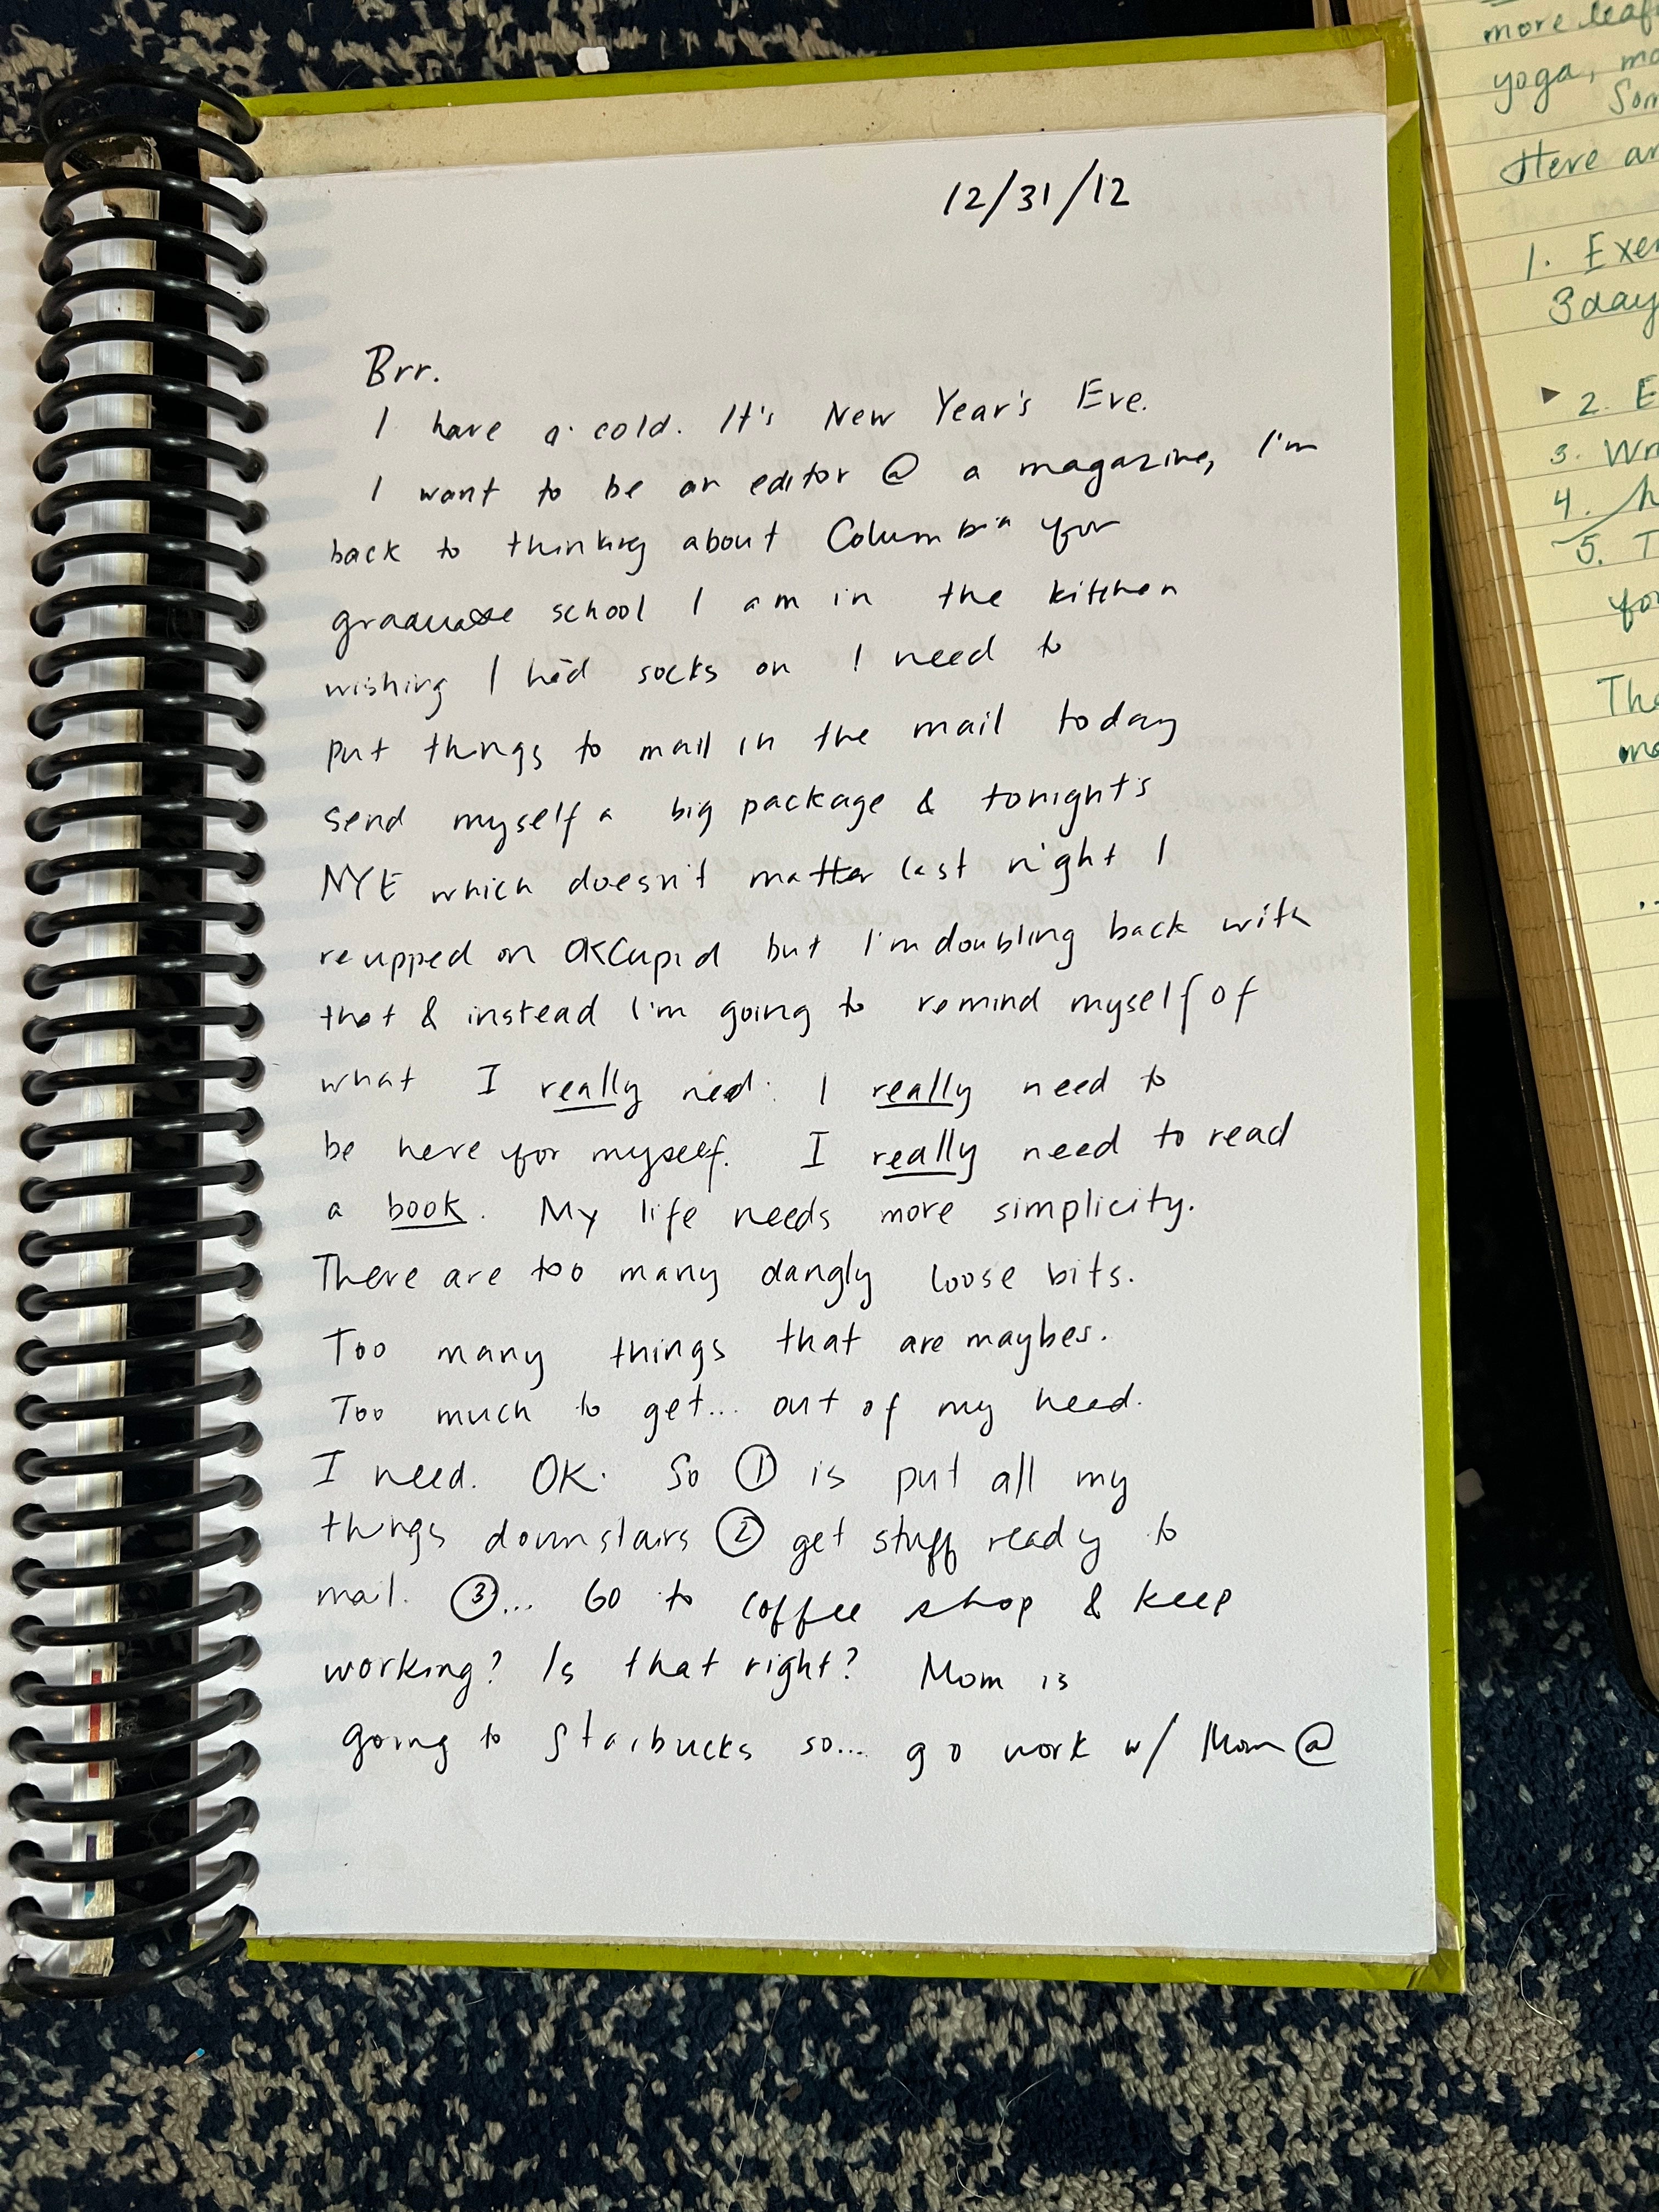 12/31/12
Brr.
I have a cold. It's New Year's Eve.
I want to be an editor @ a magazine, I'm
back to thinking about Columbia for
graduate school I am in the kitchen
wishing I had socks on I need to
put things to mail in the mail today
send myself a big package & tonight's
NYE which doesn't matter last night I
reupped on OKCupid but I'm doubling back with
that & instead I'm going to remind myself of
what I really need: I really need to
be here for myself. I really need to read
a book. My life needs more simplicity.
There are too many dangly loose bits.
Too many things that are maybes.
Too much to get... out of my head.
I need. OK. So ① is put all my
things downstairs ② get stuff ready to
mail. ③... Go to coffee shop & keep
working? Is that right? Mom is
going to Starbucks so... go work w/ Mom @
more leaf
yoga, mo
Som
Here ar
1. Exer
3 day
2. E
3. Wr
4. h
5. T
for
The
mo